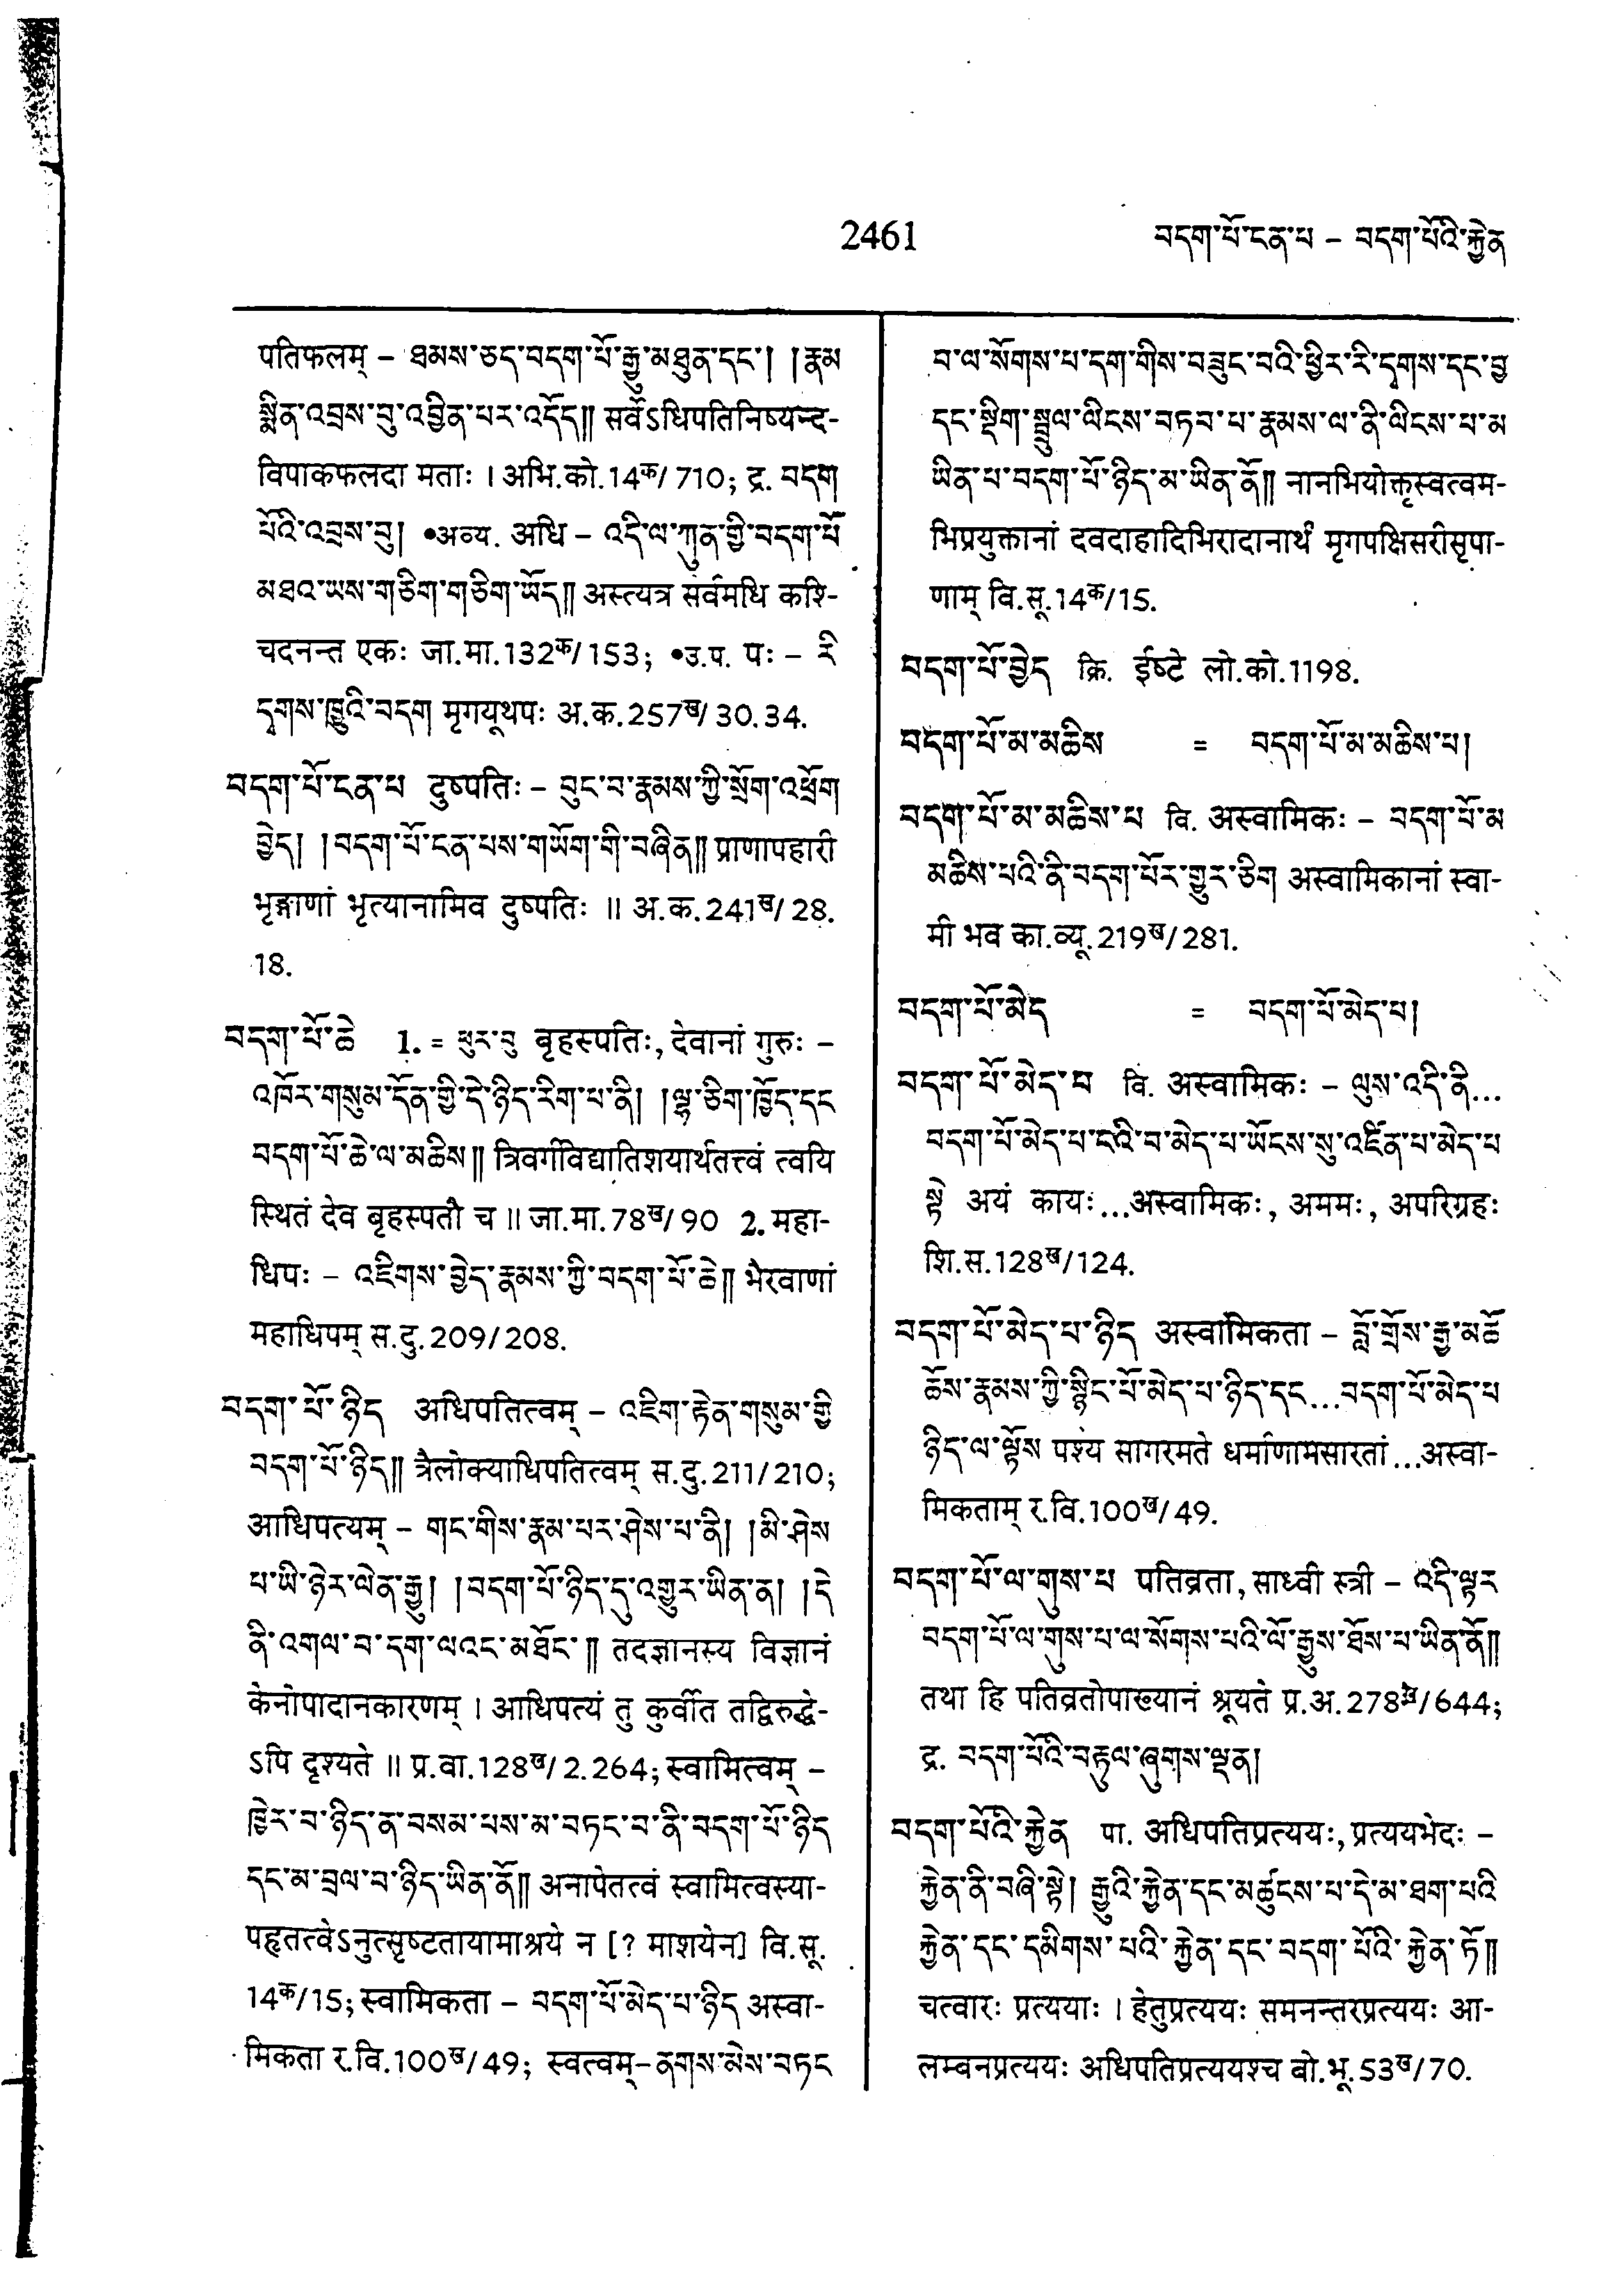 2461
བདག་པོ་ངན་པ – བདག་པོའི་རྐྱེན
पतिफलम् – ཐམས་ཅད་བདག་པོ་རྒྱུ་མཐུན་དང་། །རྣམ
སྨིན་འབྲས་བུ་འབྱིན་པར་འདོད།། सर्वेऽधिपतिनिष्यन्द-
विपाकफलदा मताः । अभि.को.14क/710; द्र. བདག
པོའི་འབྲས་བུ། •अव्य. अधि – འདི་ལ་ཀུན་གྱི་བདག་པོ
མཐའ་ཡས་གཅིག་གཅིག་ཡོད།། अस्त्यत्र सर्वमधि कश्चि-
चदनन्त एकः जा.मा.132क/153; •उ.प. पः – རི
དྭགས་ཁྱུའི་བདག मृगयूथपः अ.क.257ख/30.34.
བདག་པོ་ངན་པ दुष्पतिः – བུང་བ་རྣམས་ཀྱི་སྲོག་འཕྲོག
བྱེད། །བདག་པོ་ངན་པས་གཡོག་གི་བཞིན།། प्राणापहारी
भृङ्गाणां भृत्यानामिव दुष्पतिः ॥ अ.क.241ख/28.
18.
བདག་པོ་ཆེ 1. = ཕུར་བུ बृहस्पतिः, देवानां गुरुः –
འཁོར་གསུམ་དོན་གྱི་དེ་ཉིད་རིག་པ་ནི། །ལྷ་ཅིག་ཁྱོད་དང
བདག་པོ་ཆེ་ལ་མཆིས།། त्रिवर्गविद्यातिशयार्थतत्त्वं त्वयि
स्थितं देव बृहस्पतौ च ॥ जा.मा.78ख/90 2. महा-
धिपः – འཇིགས་བྱེད་རྣམས་ཀྱི་བདག་པོ་ཆེ།། भैरवाणां
महाधिपम् स.दु.209/208.
བདག་པོ་ཉིད अधिपतित्वम् – འཇིག་རྟེན་གསུམ་གྱི
བདག་པོ་ཉིད།། त्रैलोक्याधिपतित्वम् स.दु.211/210;
आधिपत्यम् – གང་གིས་རྣམ་པར་ཤེས་པ་ནི། །མི་ཤེས
པ་ཡི་ཉེར་ལེན་རྒྱུ། །བདག་པོ་ཉིད་དུ་འགྱུར་ཡིན་ན། །དེ
ནི་འགལ་བ་དག་ལའང་མཐོང་།། तदज्ञानस्य विज्ञानं
केनोपादानकारणम् । आधिपत्यं तु कुर्वीत तद्विरुद्धे-
ऽपि दृश्यते ॥ प्र.वा.128ख/2.264; स्वामित्वम् –
ཁྱེར་བ་ཉིད་ན་བསམ་པས་མ་བཏང་བ་ནི་བདག་པོ་ཉིད
དང་མ་བྲལ་བ་ཉིད་ཡིན་ནོ།། अनापेतत्वं स्वामित्वस्या-
पहृतत्वेऽनुत्सृष्टतायामाश्रये न [? माशयेन] वि.सू.
14क/15; स्वामिकता – བདག་པོ་མེད་པ་ཉིད अस्वा-
मिकता र.वि.100ख/49; स्वत्वम्–ནགས་མེས་བཏང
བ་ལ་སོགས་པ་དག་གིས་བཟུང་བའི་ཕྱིར་རི་དྭགས་དང་བྱ
དང་སྡིག་སྦྲུལ་ལིངས་བཏབ་པ་རྣམས་ལ་ནི་ལིངས་པ་མ
ཡིན་པ་བདག་པོ་ཉིད་མ་ཡིན་ནོ།། नानभियोक्तृस्वत्वम-
भिप्रयुक्तानां दवदाहादिभिरादानार्थं मृगपक्षिसरीसृपा-
णाम् वि.सू.14क/15.
བདག་པོ་བྱེད क्रि. ईष्टे लो.को.1198.
བདག་པོ་མ་མཆིས = བདག་པོ་མ་མཆིས་པ།
བདག་པོ་མ་མཆིས་པ वि. अस्वामिकः – བདག་པོ་མ
མཆིས་པའི་ནི་བདག་པོར་གྱུར་ཅིག अस्वामिकानां स्वा-
मी भव का.व्यू.219ख/281.
བདག་པོ་མེད = བདག་པོ་མེད་པ།
བདག་པོ་མེད་པ वि. अस्वामिकः – ལུས་འདི་ནི...
བདག་པོ་མེད་པ་ངའི་བ་མེད་པ་ཡོངས་སུ་འཛིན་པ་མེད་པ
སྟེ अयं कायः...अस्वामिकः, अममः, अपरिग्रहः
शि.स.128ख/124.
བདག་པོ་མེད་པ་ཉིད अस्वामिकता – བློ་གྲོས་རྒྱ་མཚོ
ཆོས་རྣམས་ཀྱི་སྙིང་པོ་མེད་པ་ཉིད་དང...བདག་པོ་མེད་པ
ཉིད་ལ་ལྟོས पश्य सागरमते धर्माणामसारतां...अस्वा-
मिकताम् र.वि.100ख/49.
བདག་པོ་ལ་གུས་པ पतिव्रता, साध्वी स्त्री – འདི་ལྟར
བདག་པོ་ལ་གུས་པ་ལ་སོགས་པའི་ལོ་རྒྱུས་ཐོས་པ་ཡིན་ནོ།།
तथा हि पतिव्रतोपाख्यानं श्रूयते प्र.अ.278ख/644;
द्र. བདག་པོའི་བརྟུལ་ཞུགས་ལྡན།
བདག་པོའི་རྐྱེན पा. अधिपतिप्रत्ययः, प्रत्ययभेदः –
རྐྱེན་ནི་བཞི་སྟེ། རྒྱུའི་རྐྱེན་དང་མཚུངས་པ་དེ་མ་ཐག་པའི
རྐྱེན་དང་དམིགས་པའི་རྐྱེན་དང་བདག་པོའི་རྐྱེན་ཏོ།།
चत्वारः प्रत्ययाः । हेतुप्रत्ययः समनन्तरप्रत्ययः आ-
लम्बनप्रत्ययः अधिपतिप्रत्ययश्च बो.भू.53ख/70.